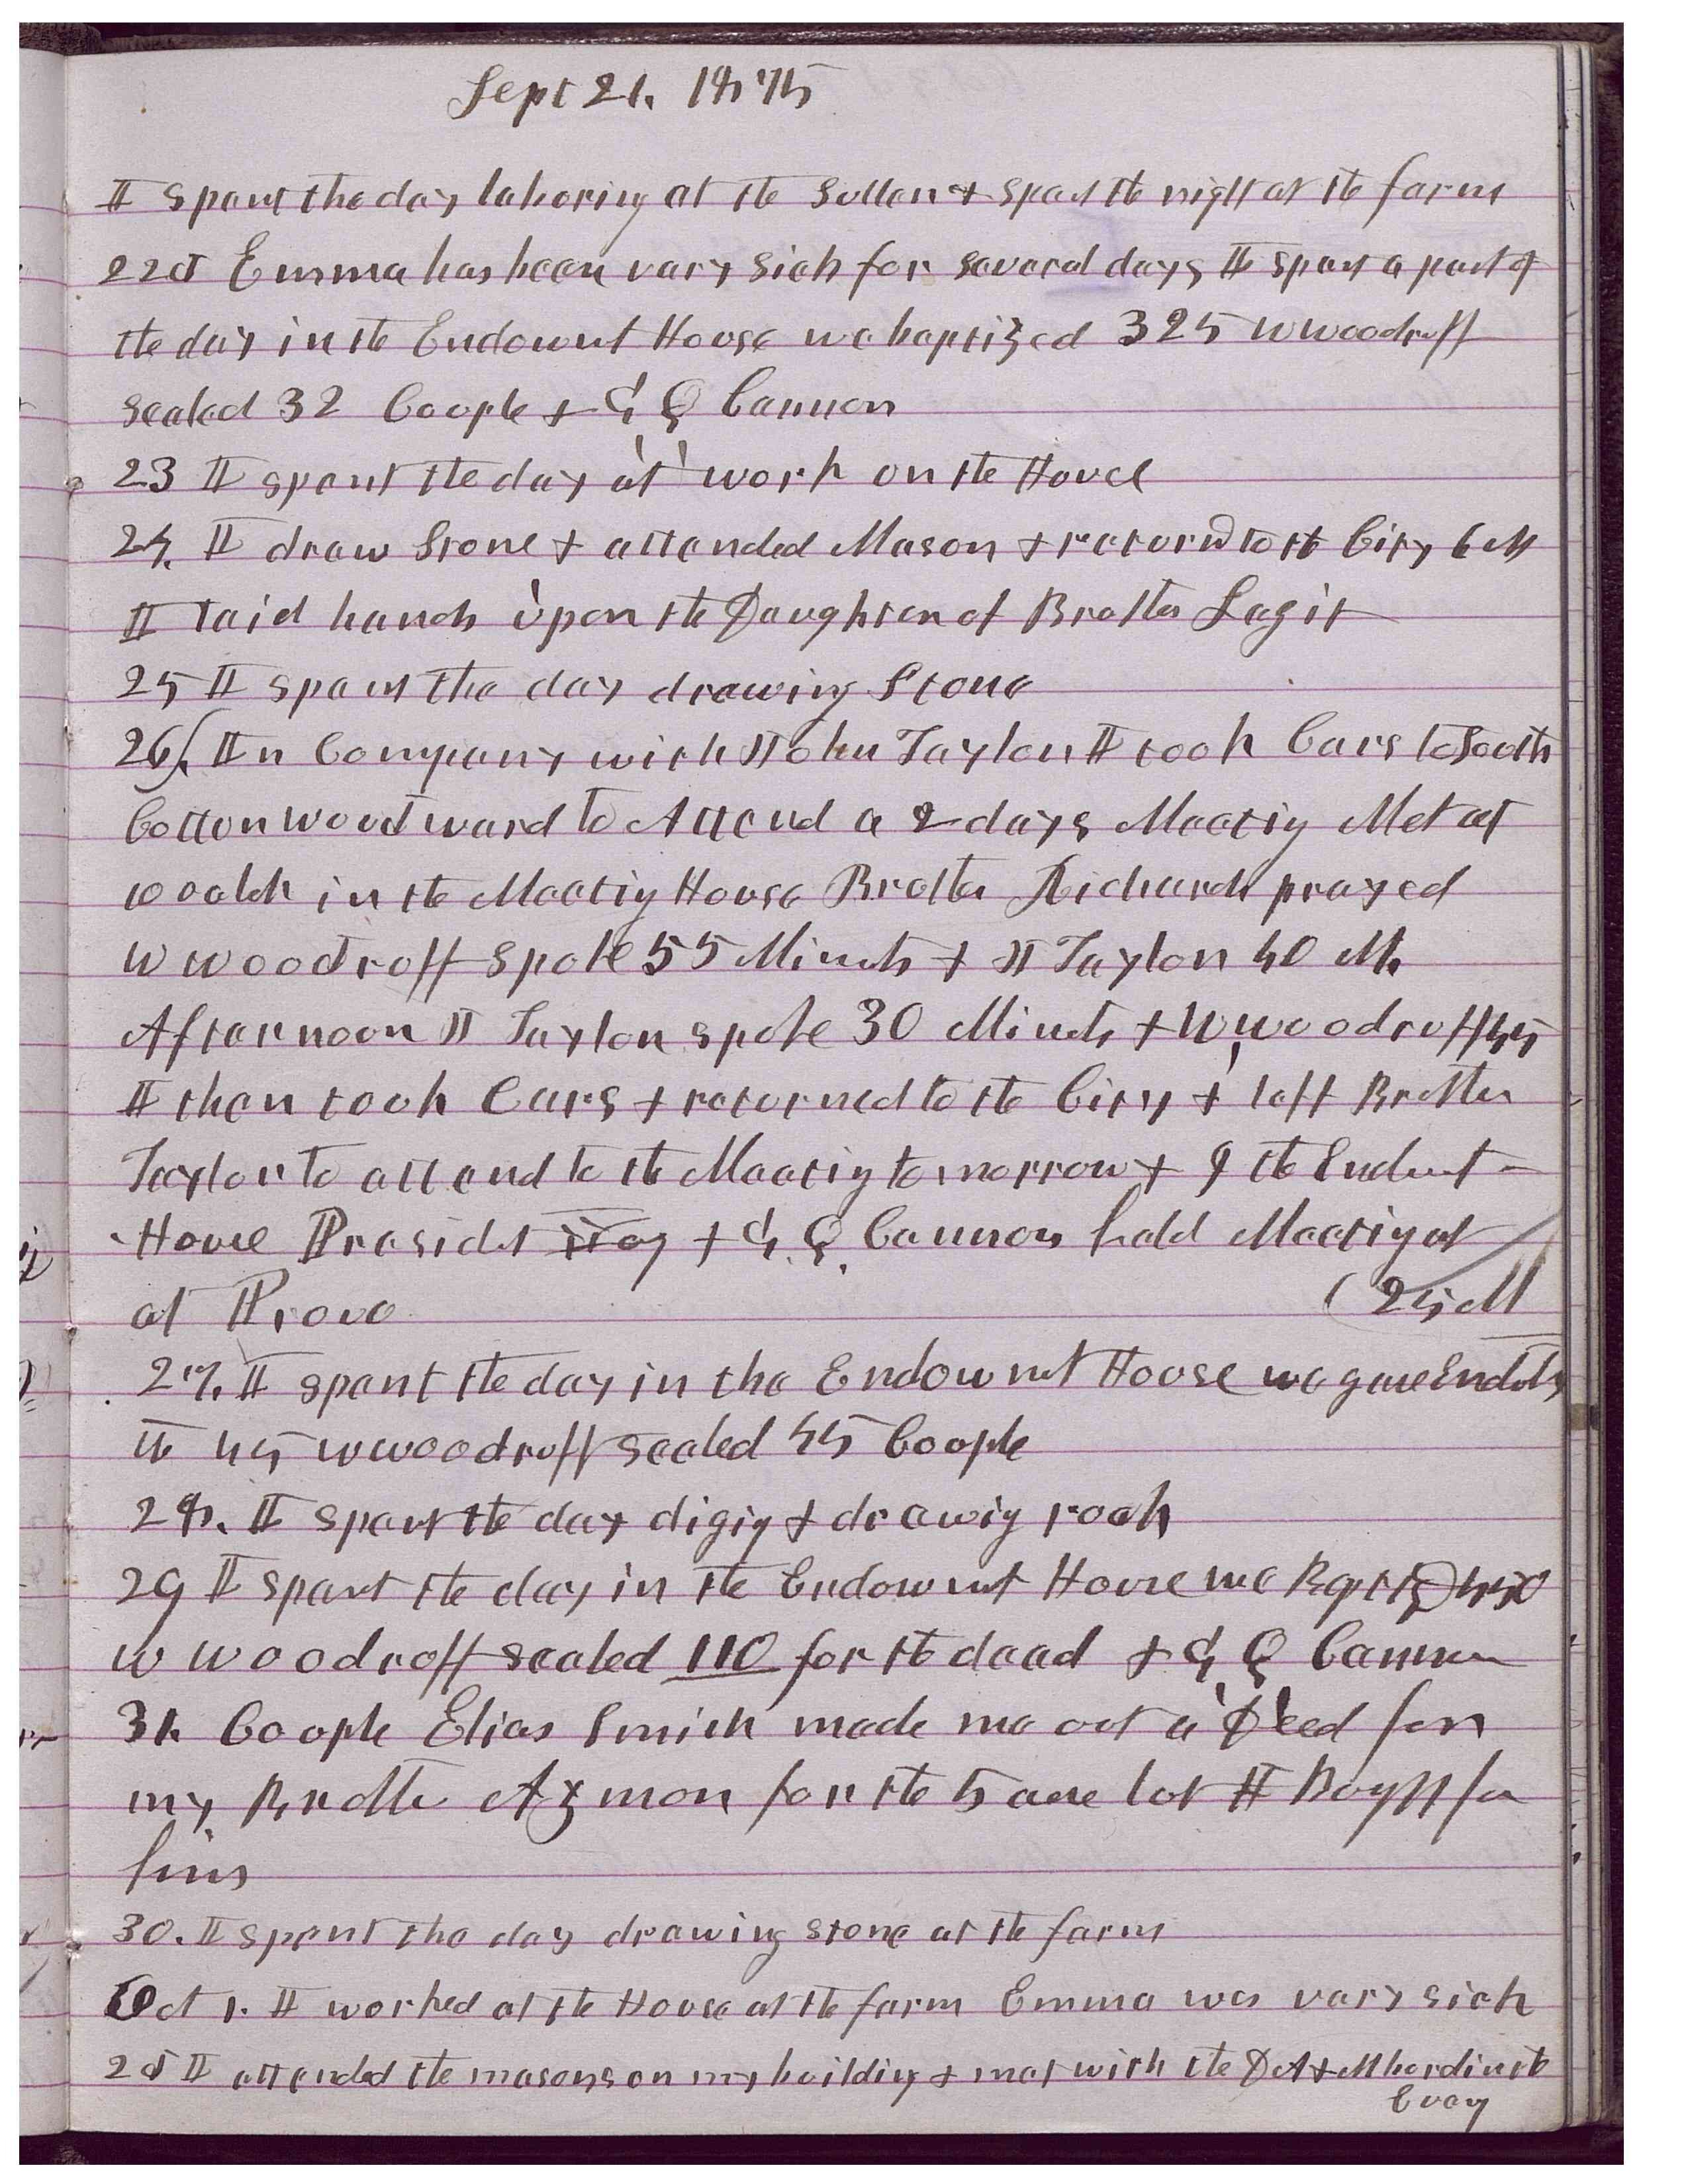 Sept 21. 1875
I spent the day laboring at the Sellar & spent the night at the farm
22d Emma has been vary sick for several days I spent a part of
the day in the Endowmt House we baptized 325 W Woodruff
sealed 32 Couple & G Q Cannon
23 I spent the day at work on the House
24. I draw Stone & attended Mason & returnd to the City 6 M
I laid hands upon the Daughter of Brother Legit
25 I spent the day drawing Stone
26/. In Company with John Taylor I took Cars to South
Cottonwood ward to Attend a 2 days Meetig Met at
10 oclok in the Meetig House Brother Richards prayed
W Woodruff spoke 55 Minuts & J Taylor 40 M.
Afternoon J Taylor spoke 30 Minuts & W Woodruff 45
I then took Cars & returned to the City & left Brother
Taylor to attend to the Meetig tomorrow & the Endmt
House Presidet & G. Q. Cannon held Meetig at
at Provo (24 M
27. I spent the day in the Endowmt House we gave Endmts
to 45 W Woodruff sealed 45 Couple
28. I spent the day digig & drawig rock
29 I spent the day in the Endowmt House we Baptizd 450
W Woodruff sealed 110 for the dead & G Q Cannon
31. Couple Elias Smith made me out a Deed for
my Brother Azmon for the 5 acre lot I Bought for
him
30. I spent the day drawing stone at the farm
Oct 1. I worked at the House at the farm Emma was vary sick
2d I attended the masons on my building & met with the D A & M